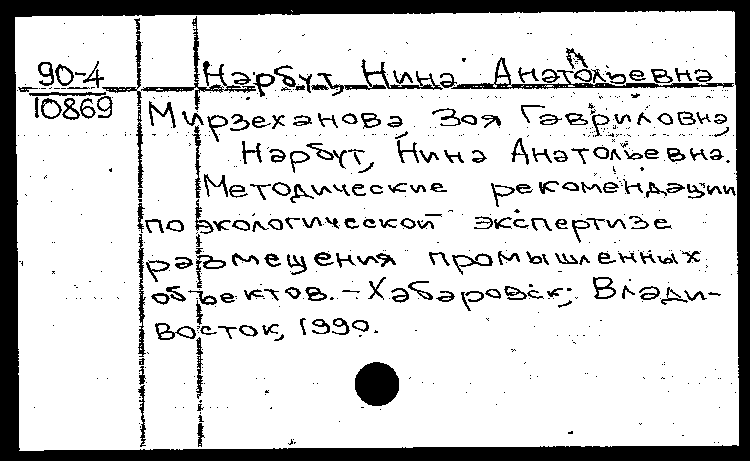 90-4
10869
Нарбут, Нина Анатольевна
Мирзеханова, Зоя Гавриловна,
Нарбут, Нина Анатольевна.
Методические рекомендации
по экологической экспертизе
размещения промышленных
объектов. - Хабаровск; Влади-
восток, 1990.